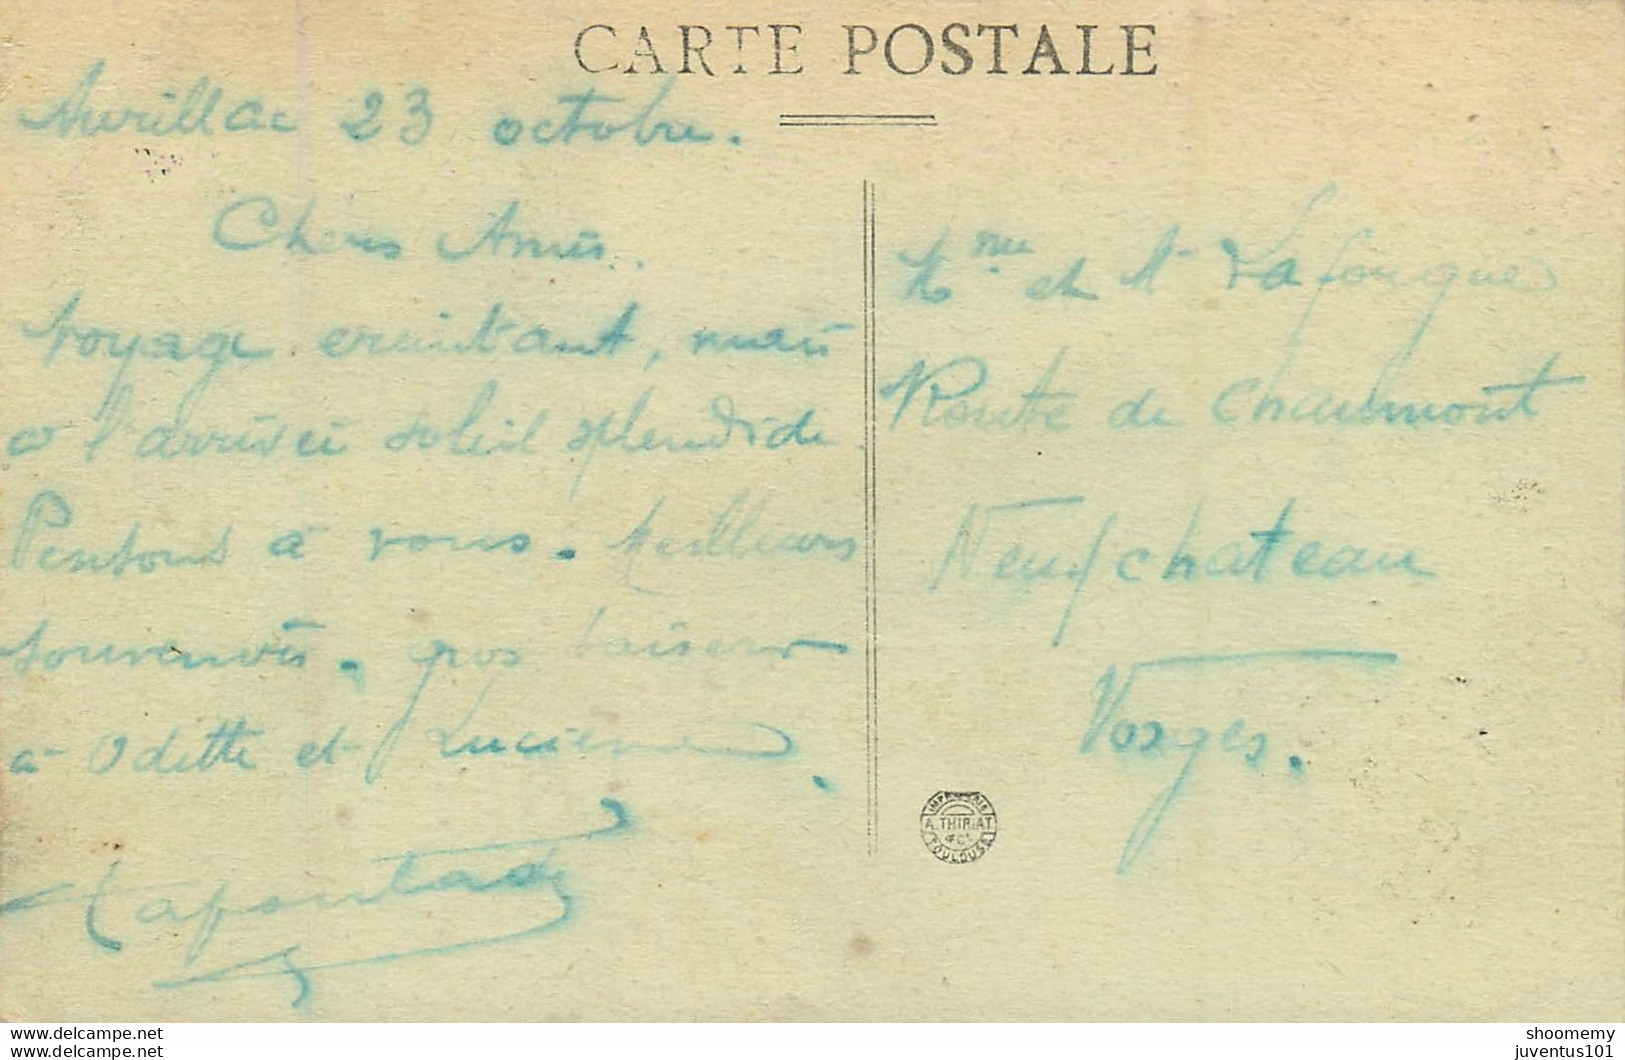 CARTE POSTALE
Aurillac 23 octobre.
Chers Amis.
Voyage ereintant, mais
a l'arrivée soleil splendide
Pensons à vous. Meilleurs
souvenirs. gros baisers
à Odette et Lucienne.
Lafontade
Mme et Mr Lafongue
Route de Chaumont
Neufchateau
Vosges.
IMPRIMERIE
A. THIRIAT
& Cie
TOULOUSE
delcampe.net
delcampe.net
shoomemy
juventus101